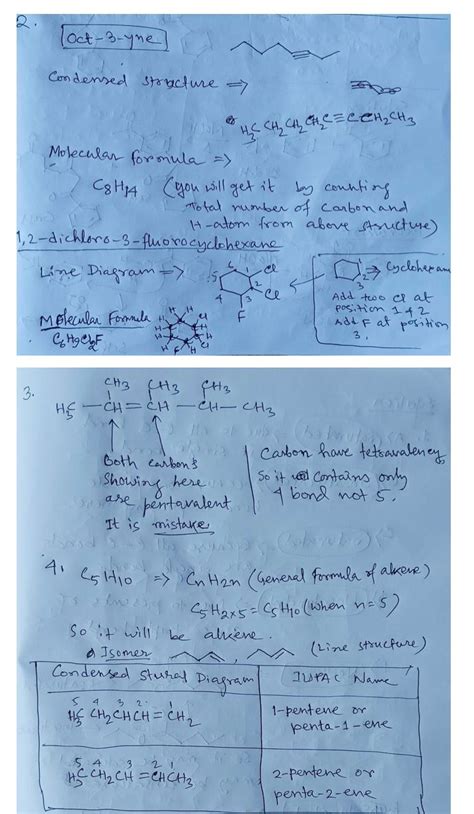 2.
Oct-3-yne
Condensed structure ⇒
H3C CH2CH2CH2C≡CCH2CH3
Molecular formula ⇒
C8H14 (you will get it by counting
total number of carbon and
H-atom from above structure)
1,2-dichloro-3-fluorocyclohexane
Line Diagram ⇒
5 6 1 Cl
2
4 3 Cl
F
1
2 ⇒ Cyclohexane
3
Add two Cl at
position 1 & 2
Add F at position
3.
Molecular Formula
C6H9Cl2F
3.
CH3 CH3 CH3
H3C — CH = CH — CH — CH3
Both carbons
showing here
are pentavalent
It is mistake
Carbon have tetravalency,
So it contains only
4 bond not 5.
4.
C5H10 ⇒ CnH2n (General formula of alkene)
C5H2×5 = C5H10 (when n=5)
So it will be alkene.
Isomer , (Line structure)
Condensed Stural Diagram
IUPAC Name
5 4 3 2 1
H3C CH2CHCH=CH2
1-pentene or
penta-1-ene
5 4 3 2 1
H3C CH2CH=CHCH3
2-pentene or
penta-2-ene